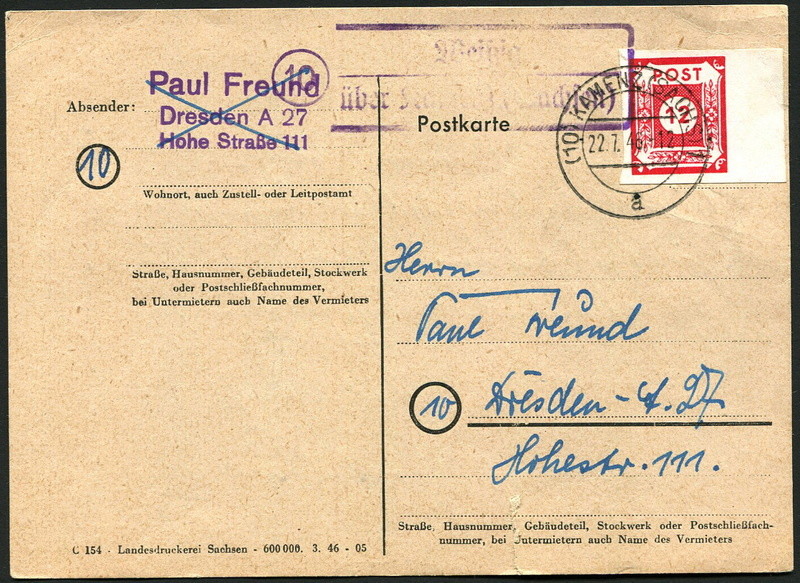 Paul Freund
Dresden A 27
Hohe Straße 111
Absender:
10
Wohnort, auch Zustell- oder Leitpostamt
Straße, Hausnummer, Gebäudeteil, Stockwerk
oder Postschließfachnummer,
bei Untermietern auch Name des Vermieters
C 154 · Landesdruckerei Sachsen - 600 000. 3. 46 - 05
10
über
Postkarte
POST
12
(10) KAMENZ (SACHS)
22.7.46.-12
a
Herrn
Paul Freund
10 Dresden-A. 27
Hohestr. 111.
Straße, Hausnummer, Gebäudeteil, Stockwerk oder Postschließfach-
nummer, bei Untermietern auch Name des Vermieters